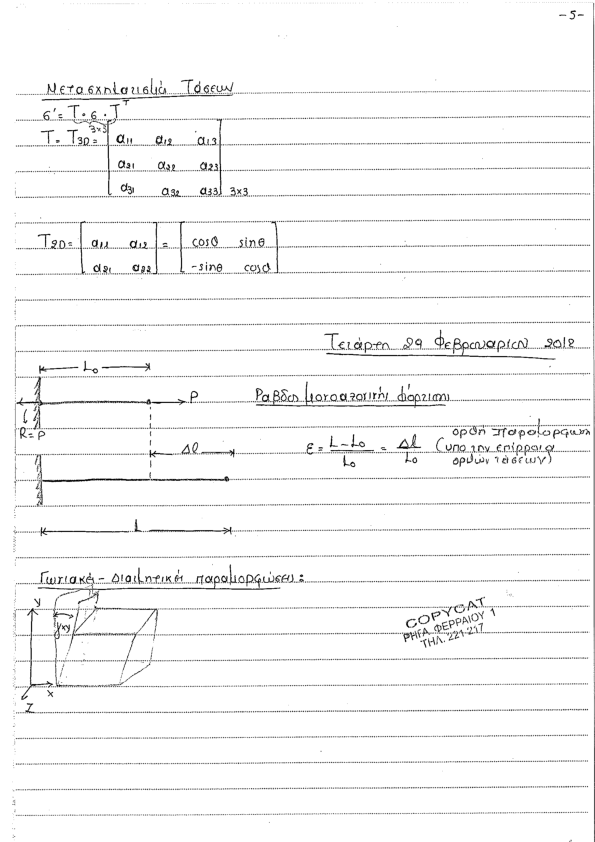 -5-
Μετασχηματισμοί Τάσεων
σ' = T · σ · T^T
3x3
T = T3D = [ a11 a12 a13
a21 a22 a23
a31 a32 a33 ] 3x3
T2D = [ a11 a12 ] = [ cosθ sinθ ]
[ a21 a22 ] [ -sinθ cosθ ]
Τετάρτη 29 Φεβρουαρίου 2012
L₀
P
R=P
Ράβδοι μονοαξονική φόρτιση
Δl
ε = (L-L₀)/L₀ = Δl/L₀ (ορθή παραμόρφωση
υπό την επίρροια
ορθών τάσεων)
L
Γωνιακές - Διατμητικές παραμορφώσεις:
y
γxy
x
z
COPYCAT
ΡΗΓΑ ΦΕΡΡΑΙΟΥ 1
ΤΗΛ. 221-217